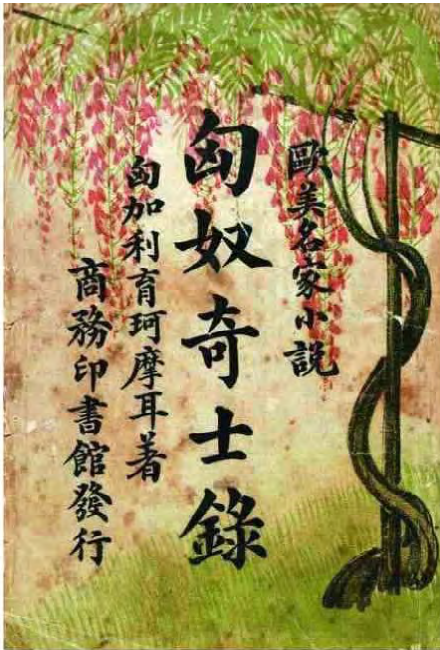 歐美名家小說
匈奴奇士錄
匈加利育珂摩耳著
商務印書館發行